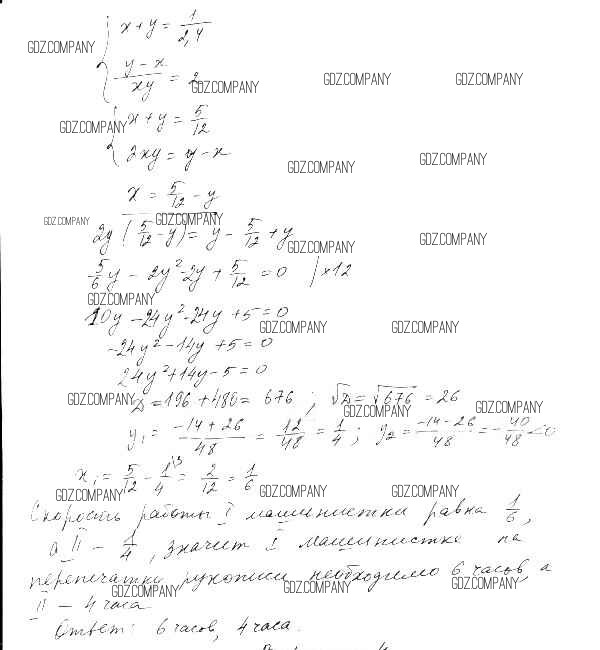 x + y = 1/2,4
GDZ.COMPANY
(y - x)/xy = 2
GDZ.COMPANY GDZ.COMPANY GDZ.COMPANY
GDZ.COMPANY x + y = 5/12
2xy = y - x GDZ.COMPANY GDZ.COMPANY
x = 5/12 - y
GDZ.COMPANY GDZ.COMPANY
2y (5/12 - y) = y - 5/12 + y GDZ.COMPANY GDZ.COMPANY
5/6 y - 2y² - 2y + 5/12 = 0 /×12
GDZ.COMPANY
10y - 24y² - 24y + 5 = 0 GDZ.COMPANY GDZ.COMPANY
-24y² - 14y + 5 = 0
24y² + 14y - 5 = 0
GDZ.COMPANY D = 196 + 480 = 676 ; √D = √676 = 26
GDZ.COMPANY GDZ.COMPANY
y₁ = (-14 + 26)/48 = 12/48 = 1/4 ; y₂ = (-14 - 26)/48 = -40/48 < 0
x₁ = 5/12 - 1/4 \3 = 2/12 = 1/6
GDZ.COMPANY GDZ.COMPANY GDZ.COMPANY
Скорость работы I машинистки равна 1/6,
а II - 1/4, значит I машинистке на
перепечатку рукописи необходимо 6 часов, а
GDZ.COMPANY GDZ.COMPANY GDZ.COMPANY
II - 4 часа
Ответ: 6 часов, 4 часа.